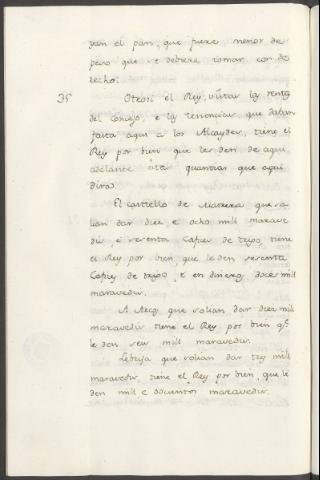 gan el pan, que fuere menor de
peso que se debiere tomar con de
recho.
35 Otrosi el Rey, vistas las rentas
del Concejo, e las tenencias que daban
fasta aqui a los Alcaydes, tiene el
Rey por bien que les den de aqui
adelante estas quantias que aqui
dirà.
El castiello de Matrera que so
lian dar diez e ocho mill marave
dis, e sesenta Cafices de trigo, tiene
el Rey por bien, que le den sesenta
Cafices de trigo, e en dineros doce mill
maravedis.
A Arcos que solian dar diez mill
maravedis tiene el Rey por bien qe.
le den seis mill maravedis.
Lebrija que solian dar tres mill
maravedis, tiene el Rey por bien, que le
den mill e docientos maravedis.